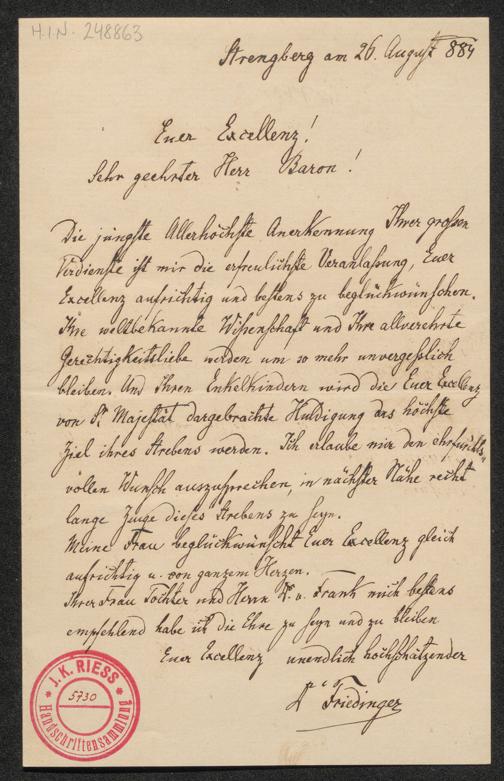 H.I.N. 248863
Strengberg am 26. August 884
Euer Excellenz!
Sehr geehrter Herr Baron!
Die jüngste Allerhöchste Anerkennung Ihrer großen
Verdienste ist mir die erfreulichste Veranlaßung, Euer
Excellenz aufrichtig und bestens zu beglückwünschen.
Ihre weltbekannte Wißenschaft und Ihre allverehrte
Gerechtigkeitsliebe werden um so mehr unvergesslich
bleiben. Und Ihren Enkelkindern wird die Euer Excellenz
von Sr. Majestät dargebrachte Huldigung das höchste
Ziel ihres Strebens werden. Ich erlaube mir den ehrfurchts-
vollen Wunsch auszusprechen, in nächster Nähe recht
lange Zeuge dieses Strebens zu seyn.
Meine Frau beglückwünscht Euer Excellenz gleich
aufrichtig u. von ganzem Herzen.
Ihrer Frau Tochter und Herrn v. Frank mich bestens
empfehlend habe ich die Ehre zu seyn und zu bleiben
Euer Excellenz unendlich hochschätzender
Friedinger
J. K. RIESS
5730
Handschriftensammlung